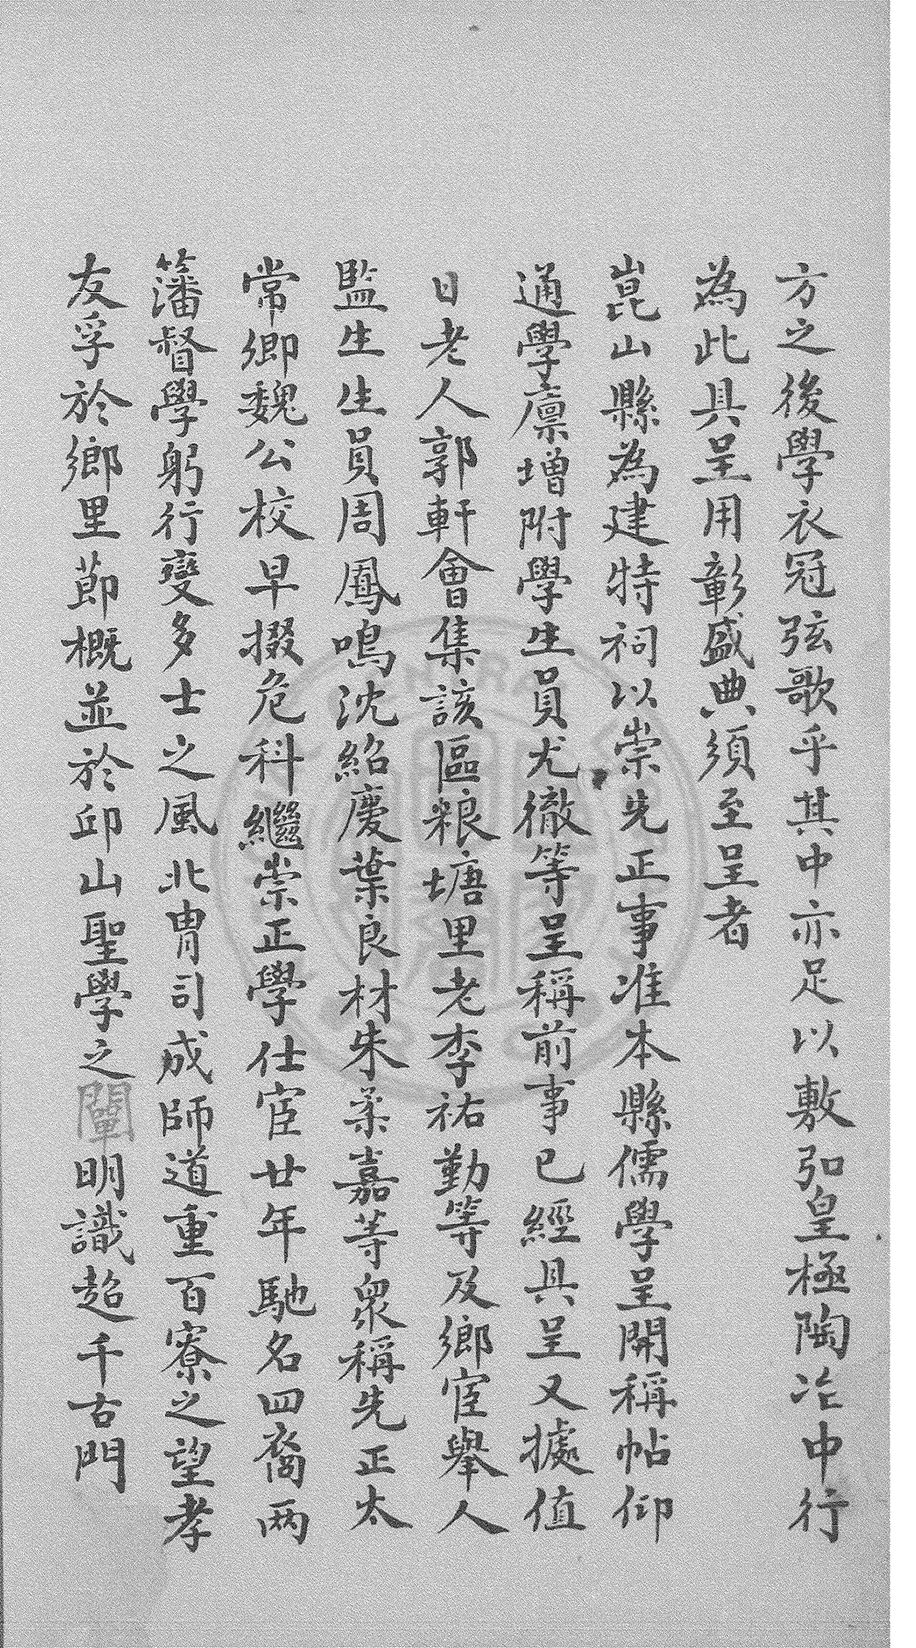 方之後學衣冠弦歌乎其中亦足以敷弘皇極陶冶中行
為此具呈用彰盛典須至呈者
崑山縣為建特祠以崇先正事准本縣儒學呈開稱帖仰
通學廩增附學生員尤徹等呈稱前事已經具呈又據值
日老人郭軒會集該區粮塘里老李祐勤等及鄉宦舉人
監生生員周鳳鳴沈紹慶葉良材朱柔嘉等衆稱先正太
常卿魏公校早掇危科繼崇正學仕宦廿年馳名四裔兩
藩督學躬行變多士之風北胄司成師道重百寮之望孝
友孚於鄉里莭概並於邱山聖學之闡明識超千古門